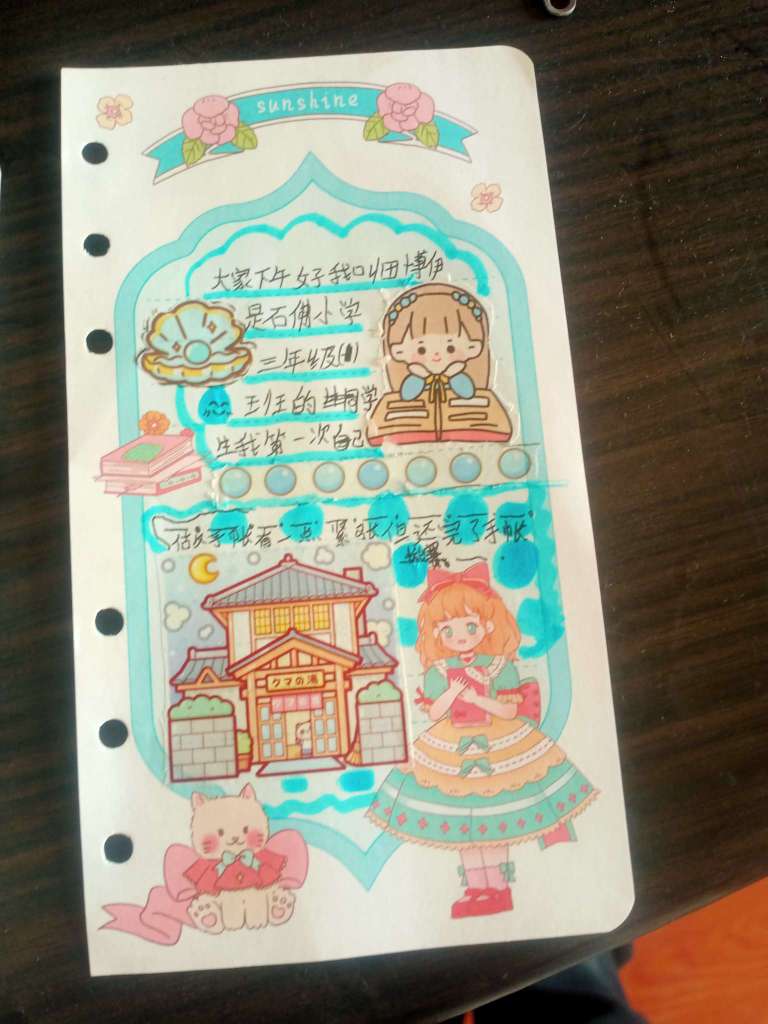 sunshine
大家下午好我叫田博伊
是石佛小学
三年级(1)
班的同学
生我第一次自己
做手帐有一点紧张但还完了手帐
クマの湯